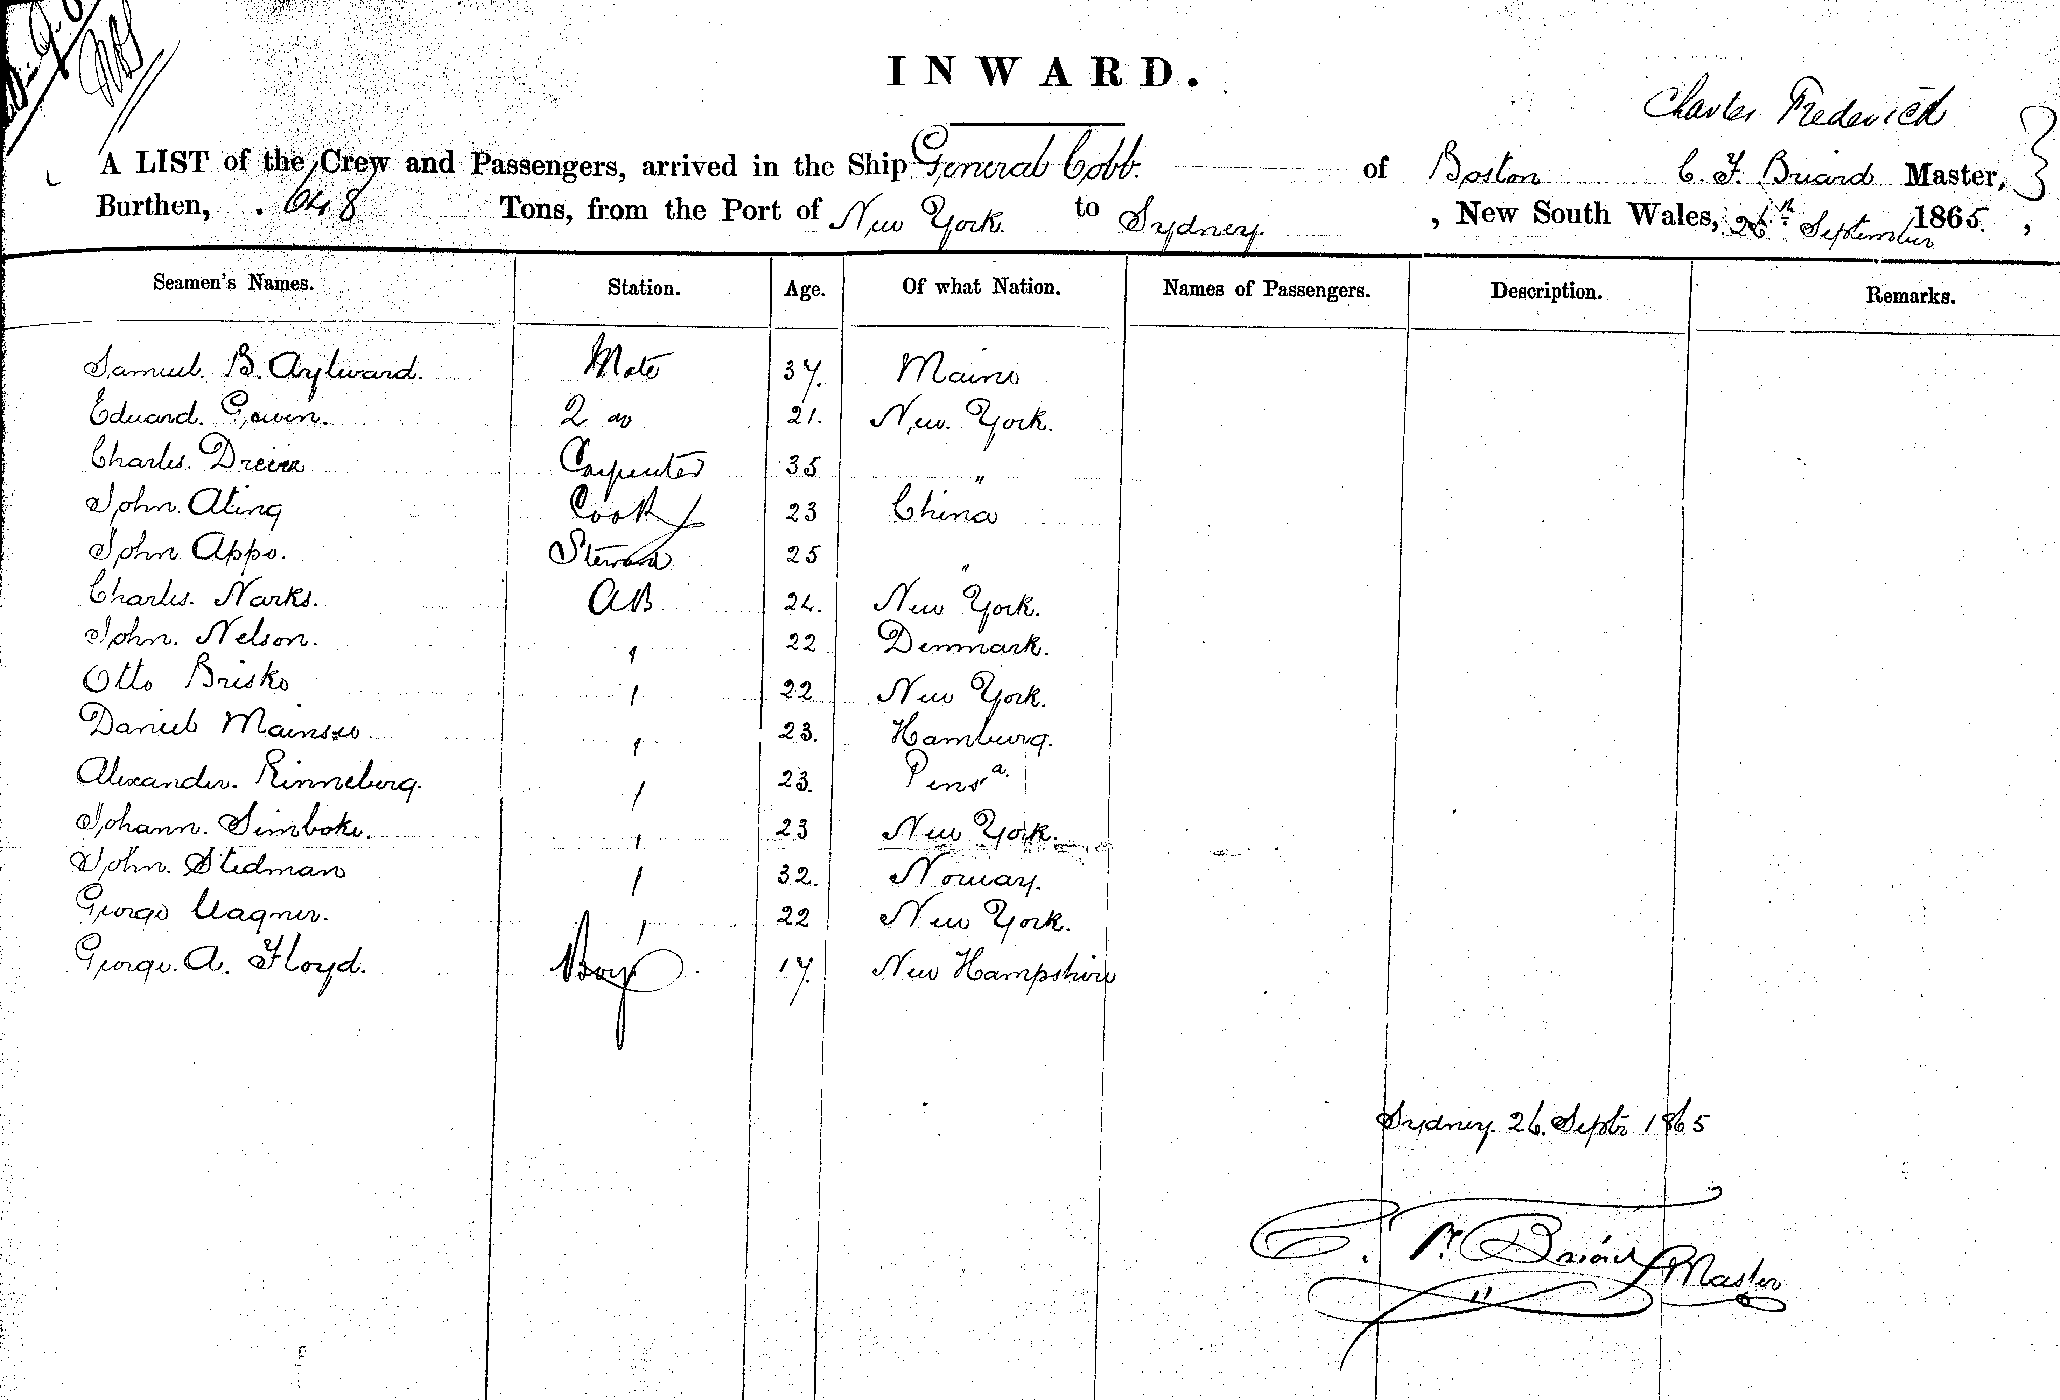 INWARD.
Charles Frederick
A LIST of the Crew and Passengers, arrived in the Ship General Cobb. of Boston C. F. Briard Master,
Burthen, 648 Tons, from the Port of New York to Sydney , New South Wales, 26th September 1865.,
Seamen's Names. Station. Age. Of what Nation. Names of Passengers. Description. Remarks.
Samuel. B. Aylward. Mate 37. Maine
Edward. Gowen. 2 do 21. New York.
Charles. Carpenter 35 "
John. Ating Cook 23 China
John Appo. Steward 25 "
Charles. Narks. AB 24. New York.
John. Nelson. " 22 Denmark.
Otto Brisko " 22 New York.
Daniel " 23. Hamburg.
Alexander. Rinneberg. " 23. Pensa.
Johann. Simboke. " 23 New York.
John. Stedman " 32. Norway.
George Wagner. " 22 New York.
George. A. Floyd. Boy 17. New Hampshire
Sydney. 26. Septr 1865
C. F. Briard Master